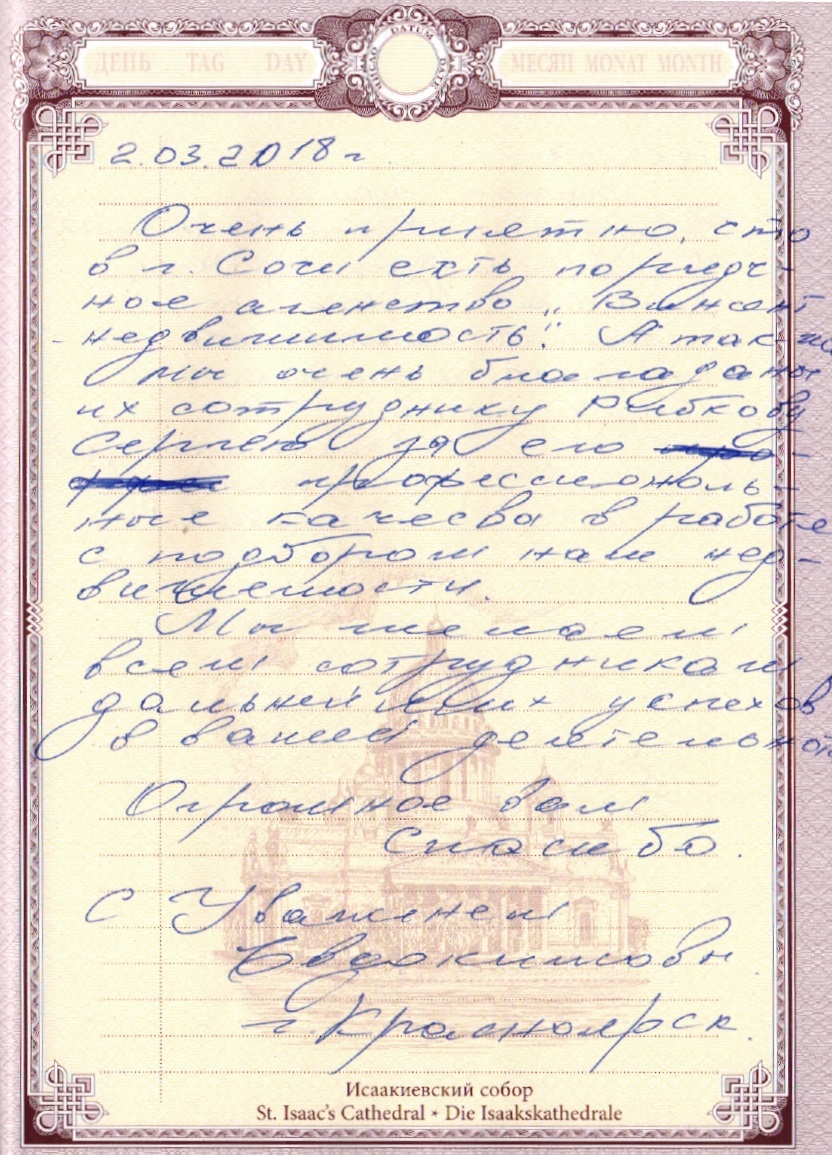 ДЕНЬ TAG DAY DATUM МЕСЯЦ MONAT MONTH
2.03.2018 г.
Очень приятно, что
в г. Сочи есть порядоч-
ное агенство „Винсент
недвижимость". А так-же
мы очень благаданы
их сотруднику Рыбкову
Сергею за его
професиональ-
ные качесва в работе
с подбором нам нед-
вижемости.
Мы желаем
всем сотрудникам
дальнейших успехов
в вашей деятельност
Огромное вам
Спасибо.
С Уваженем
Евдокимовы
г. Красноярск.
Исаакиевский собор
St. Isaac's Cathedral * Die Isaakskathedrale